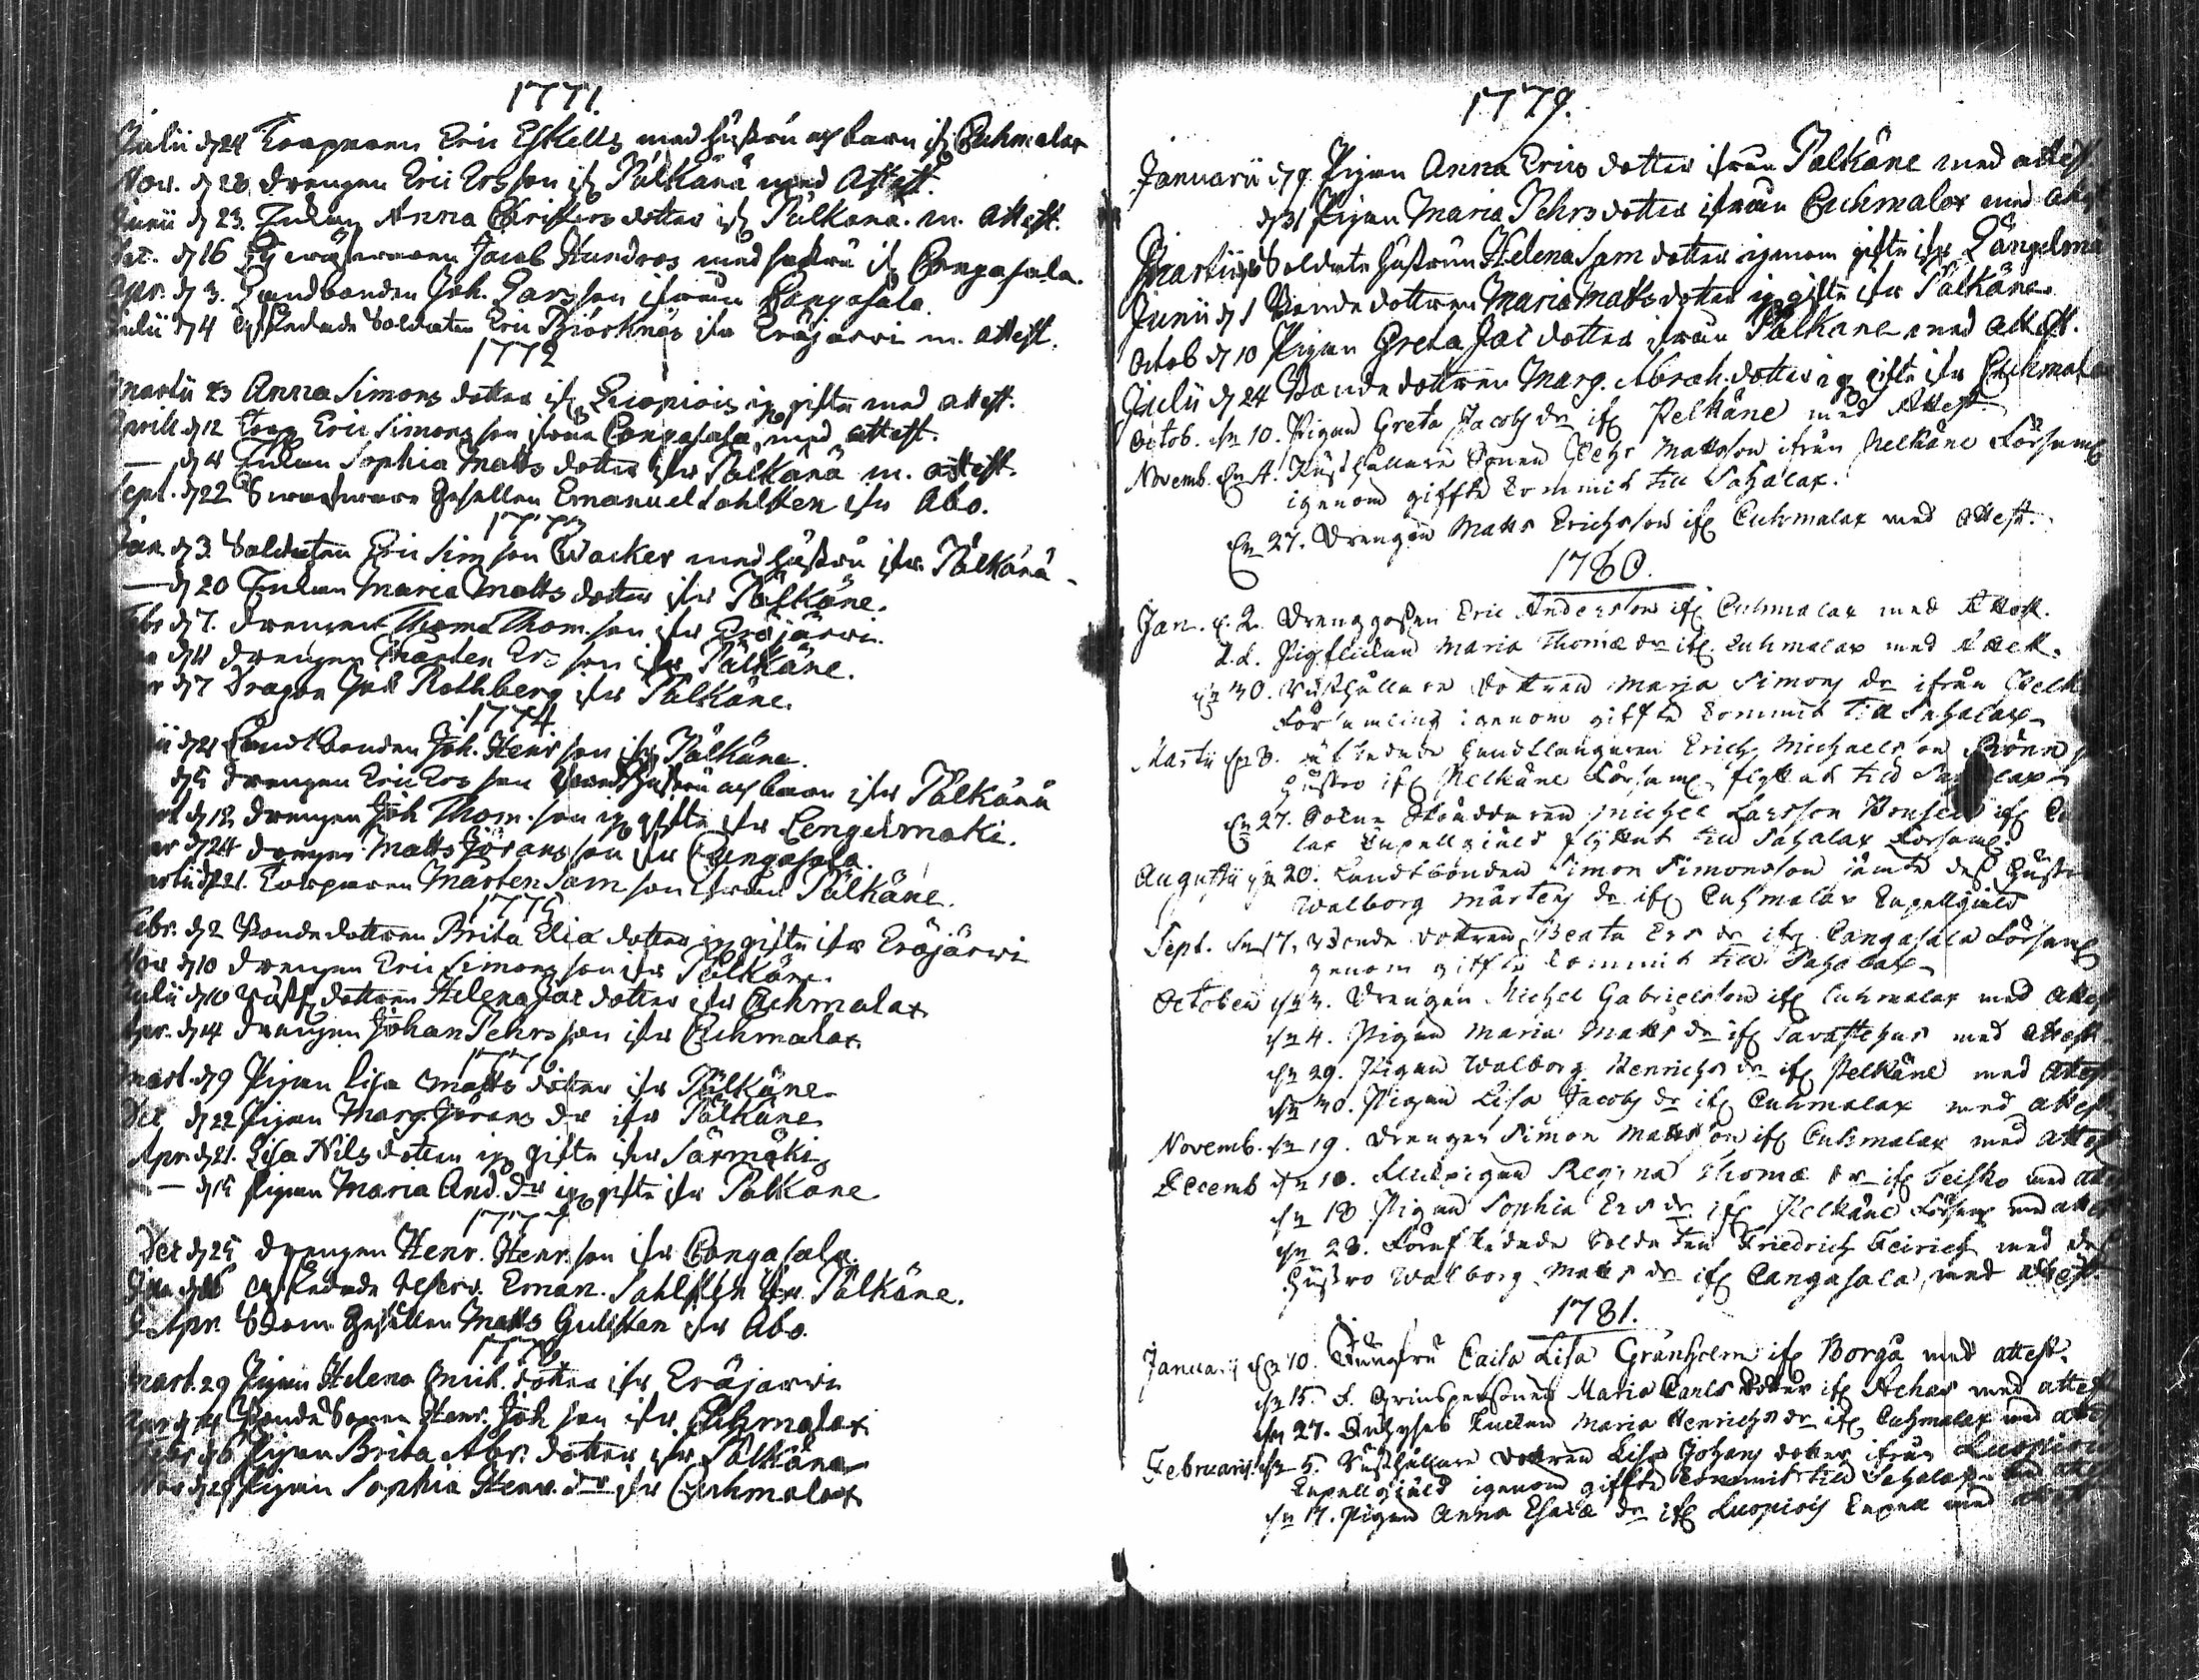 1771
Julii d 24 Torparen Eric Eskells med hustru och barn ifr Cuhmalax
Nov. d 28 drengen Eric Ersson ifr Pälkänä med Attest.
Junii d 23. Enkan Anna Christers dotter ifr Pälkänä. m. Attest.
d 16 Jacob Hundros med hustru ifr Cangasala.
Apr. d 3. Landbonden Joh. Larsson ifrån Cangasala.
Julii d 4 afskedade Soldaten Eric Björknäs ifr Eräjärvi m. attest.
1772
Martii 23 Anna Simons dotter ifr Luopiois igm gifte med attest.
Aprill d 12 Torp Eric Simons son ifrån Cangasala med attest.
— d 4 Enkan Sophia Matts dotter ifr Pälkänä m. attest.
Sept. d 22 Swarfware Gesellen Emanuel Sahlsten ifr Abo.
1773
Jan. d 3. Soldaten Eric Simson Wacker med hustru ifr Pälkänä
— d 20 Enkan Maria Matts dotter ifr Pälkäne.
d 7. drengen Thoma Thom. son ifr Eräjärvi.
d 11 drengen Mårten Ers son ifr Pälkäne.
d 7 Dragon Rothberg ifr Pälkäne.
1774
d 21 Landtbonden Joh. Henr son ifr Pälkäne.
d 5 drengen Eric Ers son med hustru och barn ifr Pälkänä
d 18 drengen Joh Thom. son igm gifte ifr Lengelmäki.
d 24 drengen Matts Jörans son ifr Cangasala.
Martii d 21. Torparen Mårten Sam son ifrån Pälkäne.
1775
Febr. d 2 Bondedottren Brita Elia dotter igm gifte ifr Eräjärvi
Nov d 10 drengen Eric Simons son ifr Pälkäne.
Julii d 10 Rusth dottren Helena Jac dotter ifr Cuhmalax
Apr. d 14 drengen Johan Pehrs son ifr Cuhmalax.
1776
Mart. d 9 Pigan Lisa Matts dotter ifr Pälkäne.
Dec d 22 Pigan Marg. Jörans dr ifr Pälkäne
Apr d 21. Lisa Nils dotter igm gifte ifr Särmäki
— d 15 Pigan Maria And. dr igm gifte ifr Pälkäne
1777
Dec d 25 drengen Henr. Henr. son ifr Cangasala.
afskedade Eman. Sahlsten ifr Pälkäne.
Apr. Gesellen Matts Gulsten ifr Abo.
1778
Mart. 29 Pigan Helena Mich. dotter ifr Eräjärvi
Bonde Sonen Henr. Joh son ifr Cuhmalax
d 6 Pigan Brita Abr. dotter ifr Pälkäne
Nov d 28 Pigan Sophia Henr. dr ifr Cuhmalax
1779.
Januarii d 9 Pigan Anna Erics dotter ifrån Pälkäne med attest
d 31 Pigan Maria Pehrs dotter ifrån Cuhmalax med attest
Martii Soldate hustrun Helena Sam dotter igenom gifte ifr Längelmä
Junii d 1 Bondedottren Maria Matts dotter igm gifte ifr Pälkäne.
Octob d 10 Pigan Greta Jac dotter ifrån Pälkäne med attest.
Julii d 24 Bondedottren Marg. Abrah. dotter igm gifte ifr Cuhmala
Octob. dn 10. Pigan Greta Jacobs dr ifr Pelkäne med Attest.
Novemb. dn 4. Rusthållare Sonen Pehr Mattsson ifrån Pelkäne Församl
igenom giffte kommit till Sahalax.
dn 27. Drengen Matts Erichsson ifr Cuhmalax med attest.
1780.
Jan. d. 2. Drenggossen Eric Andersson ifr Cuhmalax med Attest.
d.d. Pigflickan Maria Thomæ dr ifr Cuhmalax med Attest.
dn 30. Rusthållare dottren Maria Simons dr ifrån Pelk
Församling igenom giffte kommit till Sahalax
Martii dn 8. afskedade Landtlanqueren Erich Michaelsson Brönn
hustro ifr Pelkäne Församl flyttat till Sahalax
dn 27. Michel Larsson ifr
lax Capellgiäld flyttat till Sahalax Församl.
Augustii dn 20. Landtbonden Simon Simonsson jämte des hustr
Walborg Mårtens dr ifr Cuhmalax Capellgiäld
Sept. dn 17. Bonde dottren Beata Ers dr ifr Cangasala Församl
genom giffte kommit till Sahalax
October dn 3. Drengen Michel Gabrielsson ifr Cuhmalax med attest
dn 4. Pigan Maria Matts dr ifr Tavastehus med attest
dn 29. Pigan Walborg Henrichs dr ifr Pelkäne med attest
dn 30. Pigan Lisa Jacobs dr ifr Cuhmalax med attest
Novemb. dn 19. Drengen Simon Mattsson ifr Cuhmalax med attest
Decemb dn 10. Regina Thomæ dr ifr Teisko med at
dn 18 Pigan Sophia Ers dr ifr Pelkäne Församl med attes
dn 28. Förafskedade Soldaten Friedrich Feirich med des
hustro Walborg Matts dr ifr Cangasala med attest
1781.
Januarii dn 10. Jungfru Caisa Lisa Granholm ifr Borgå med attest.
dn 15. Maria Carls dotter ifr Achas med attest
dn 27. Maria Henrichs dr ifr Cuhmalax med attest
Februarii dn 5. Rusthållare dottren Lisa Johans dotter ifrån Luopiois
Capellgiäld igenom giffte kommit till Sahalax med
dn 17. Pigan Anna Esaiæ dr ifr Luopiois Capell med